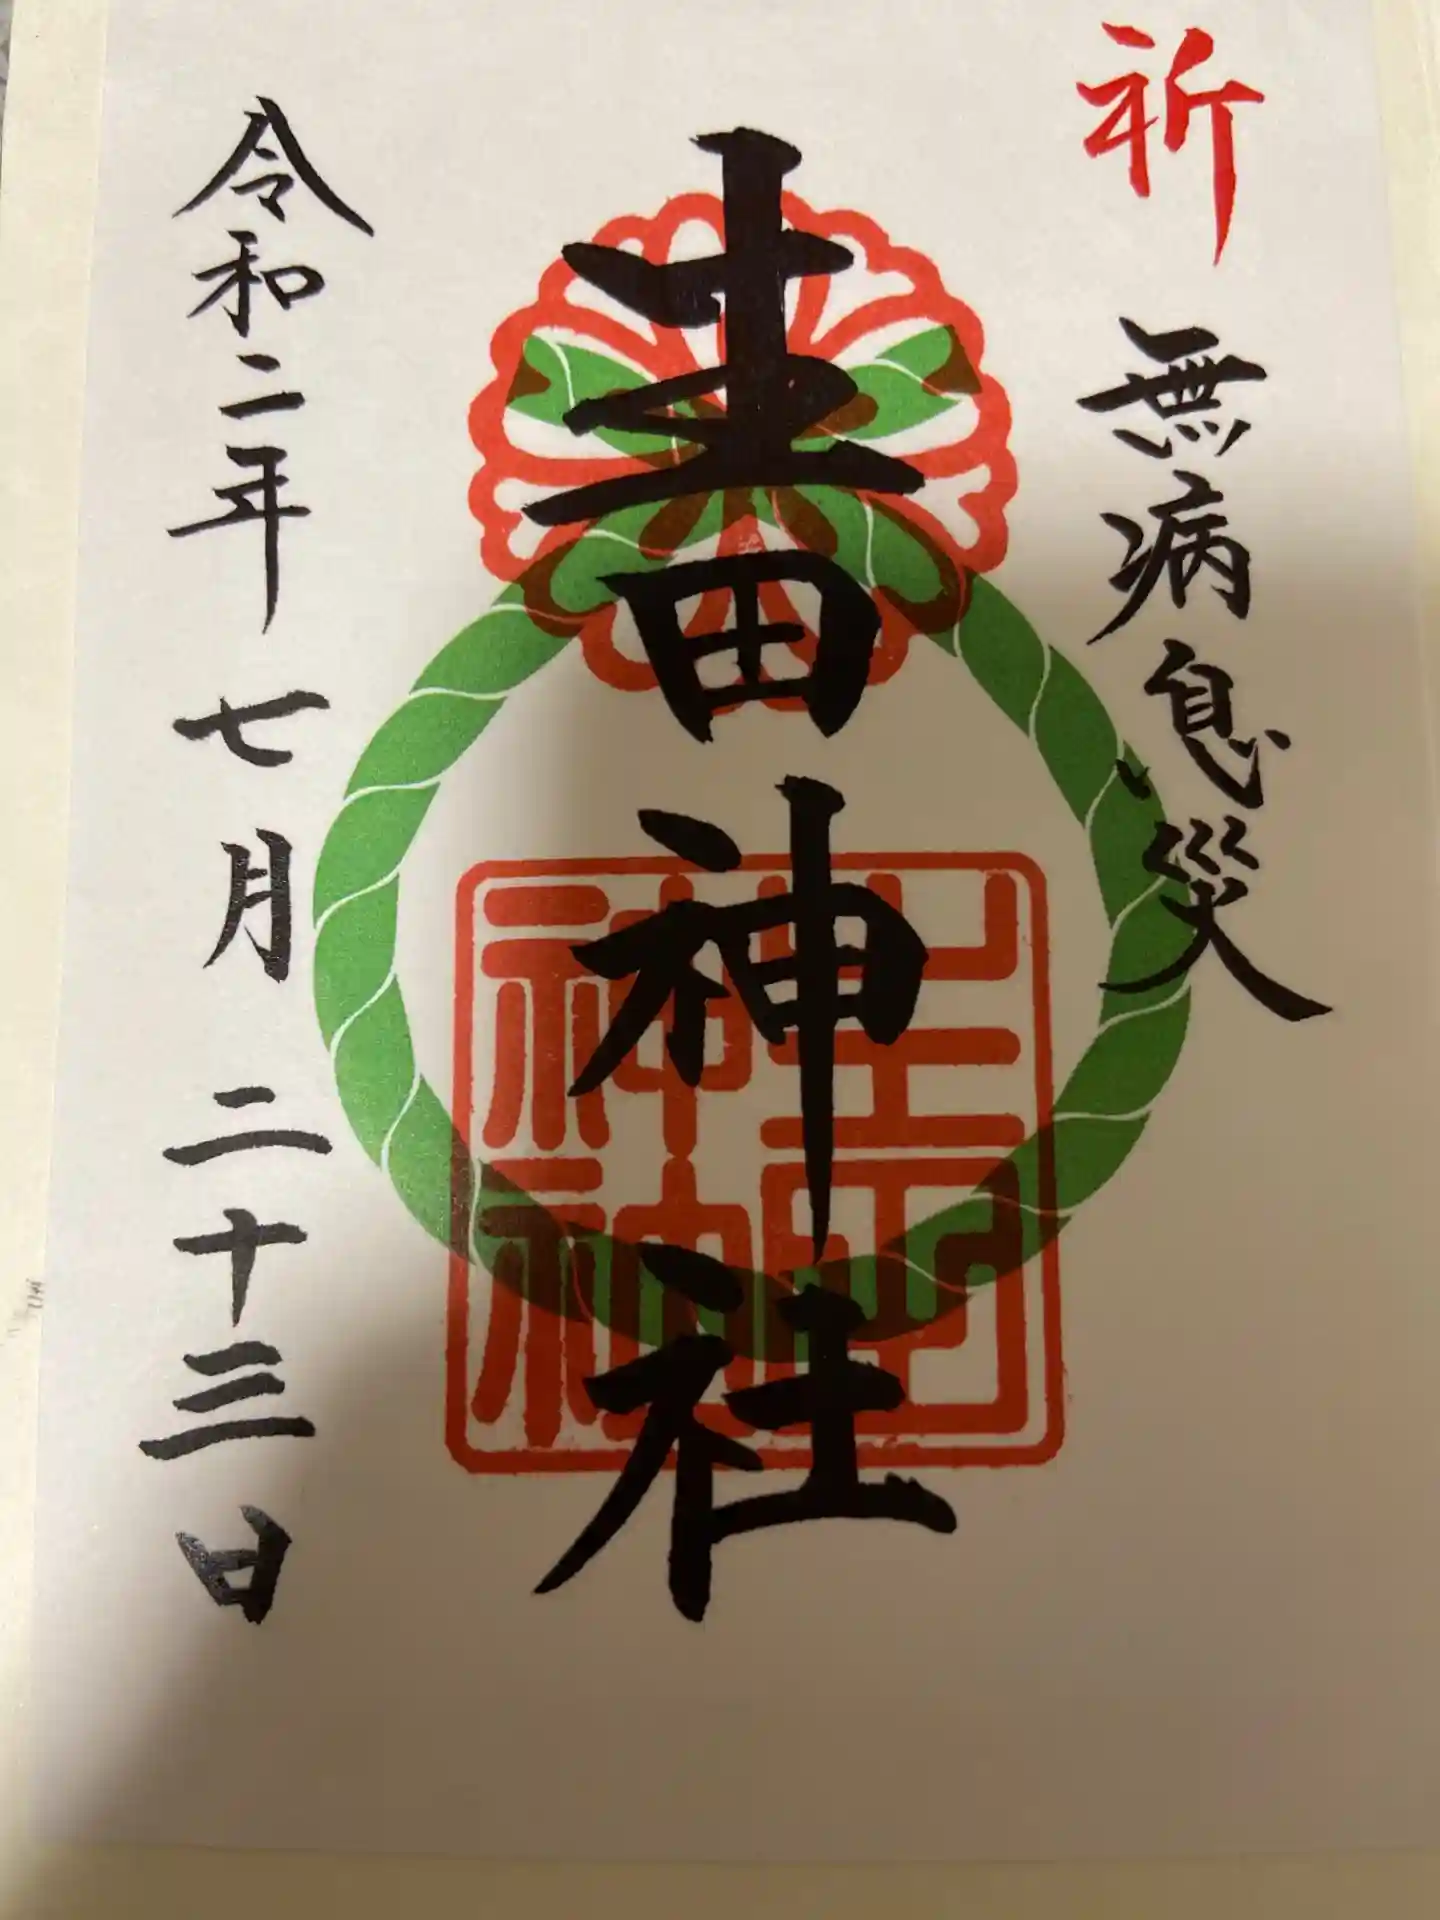 祈 無病息災
生田神社
令和二年 七月 二十三日
生田
神社